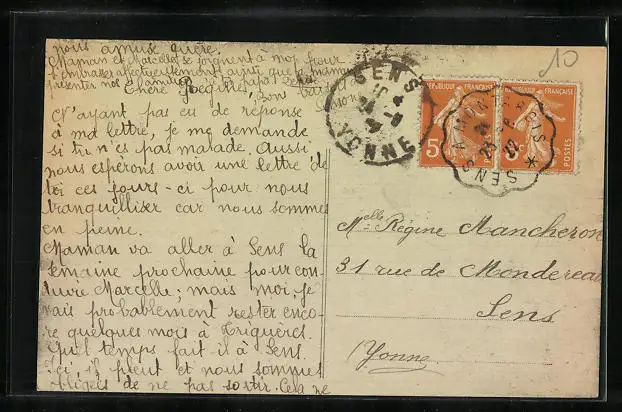 nous amuse guère.
Maman et Marcelle se joignent à moi pour
t'embrasser affectueusement ainsi que ta maman
présenter nos amitiés à ton papa
Chère Régine,
N'ayant pas eu de réponse
à ma lettre, je me demande
si tu n'es pas malade, aussi
nous espérons avoir une lettre de
toi ces jours-ci pour nous
tranquilliser car nous sommes
en peine.
Maman va aller à Sens la
semaine prochaine pour con-
duire Marcelle; mais moi, je
vais probablement rester enco-
re quelques mois à Triguères.
Quel temps fait-il à Sens.
Ici, il pleut et nous sommes
obligées de ne pas sortir. Cela ne
SENS
YONNE
REPUBLIQUE FRANÇAISE
5c
POSTES
REPUBLIQUE FRANÇAISE
POSTES
SENS A MONTARGIS
Melle Régine Mancheron
31 rue de Mondereau
Sens
(Yonne)
10